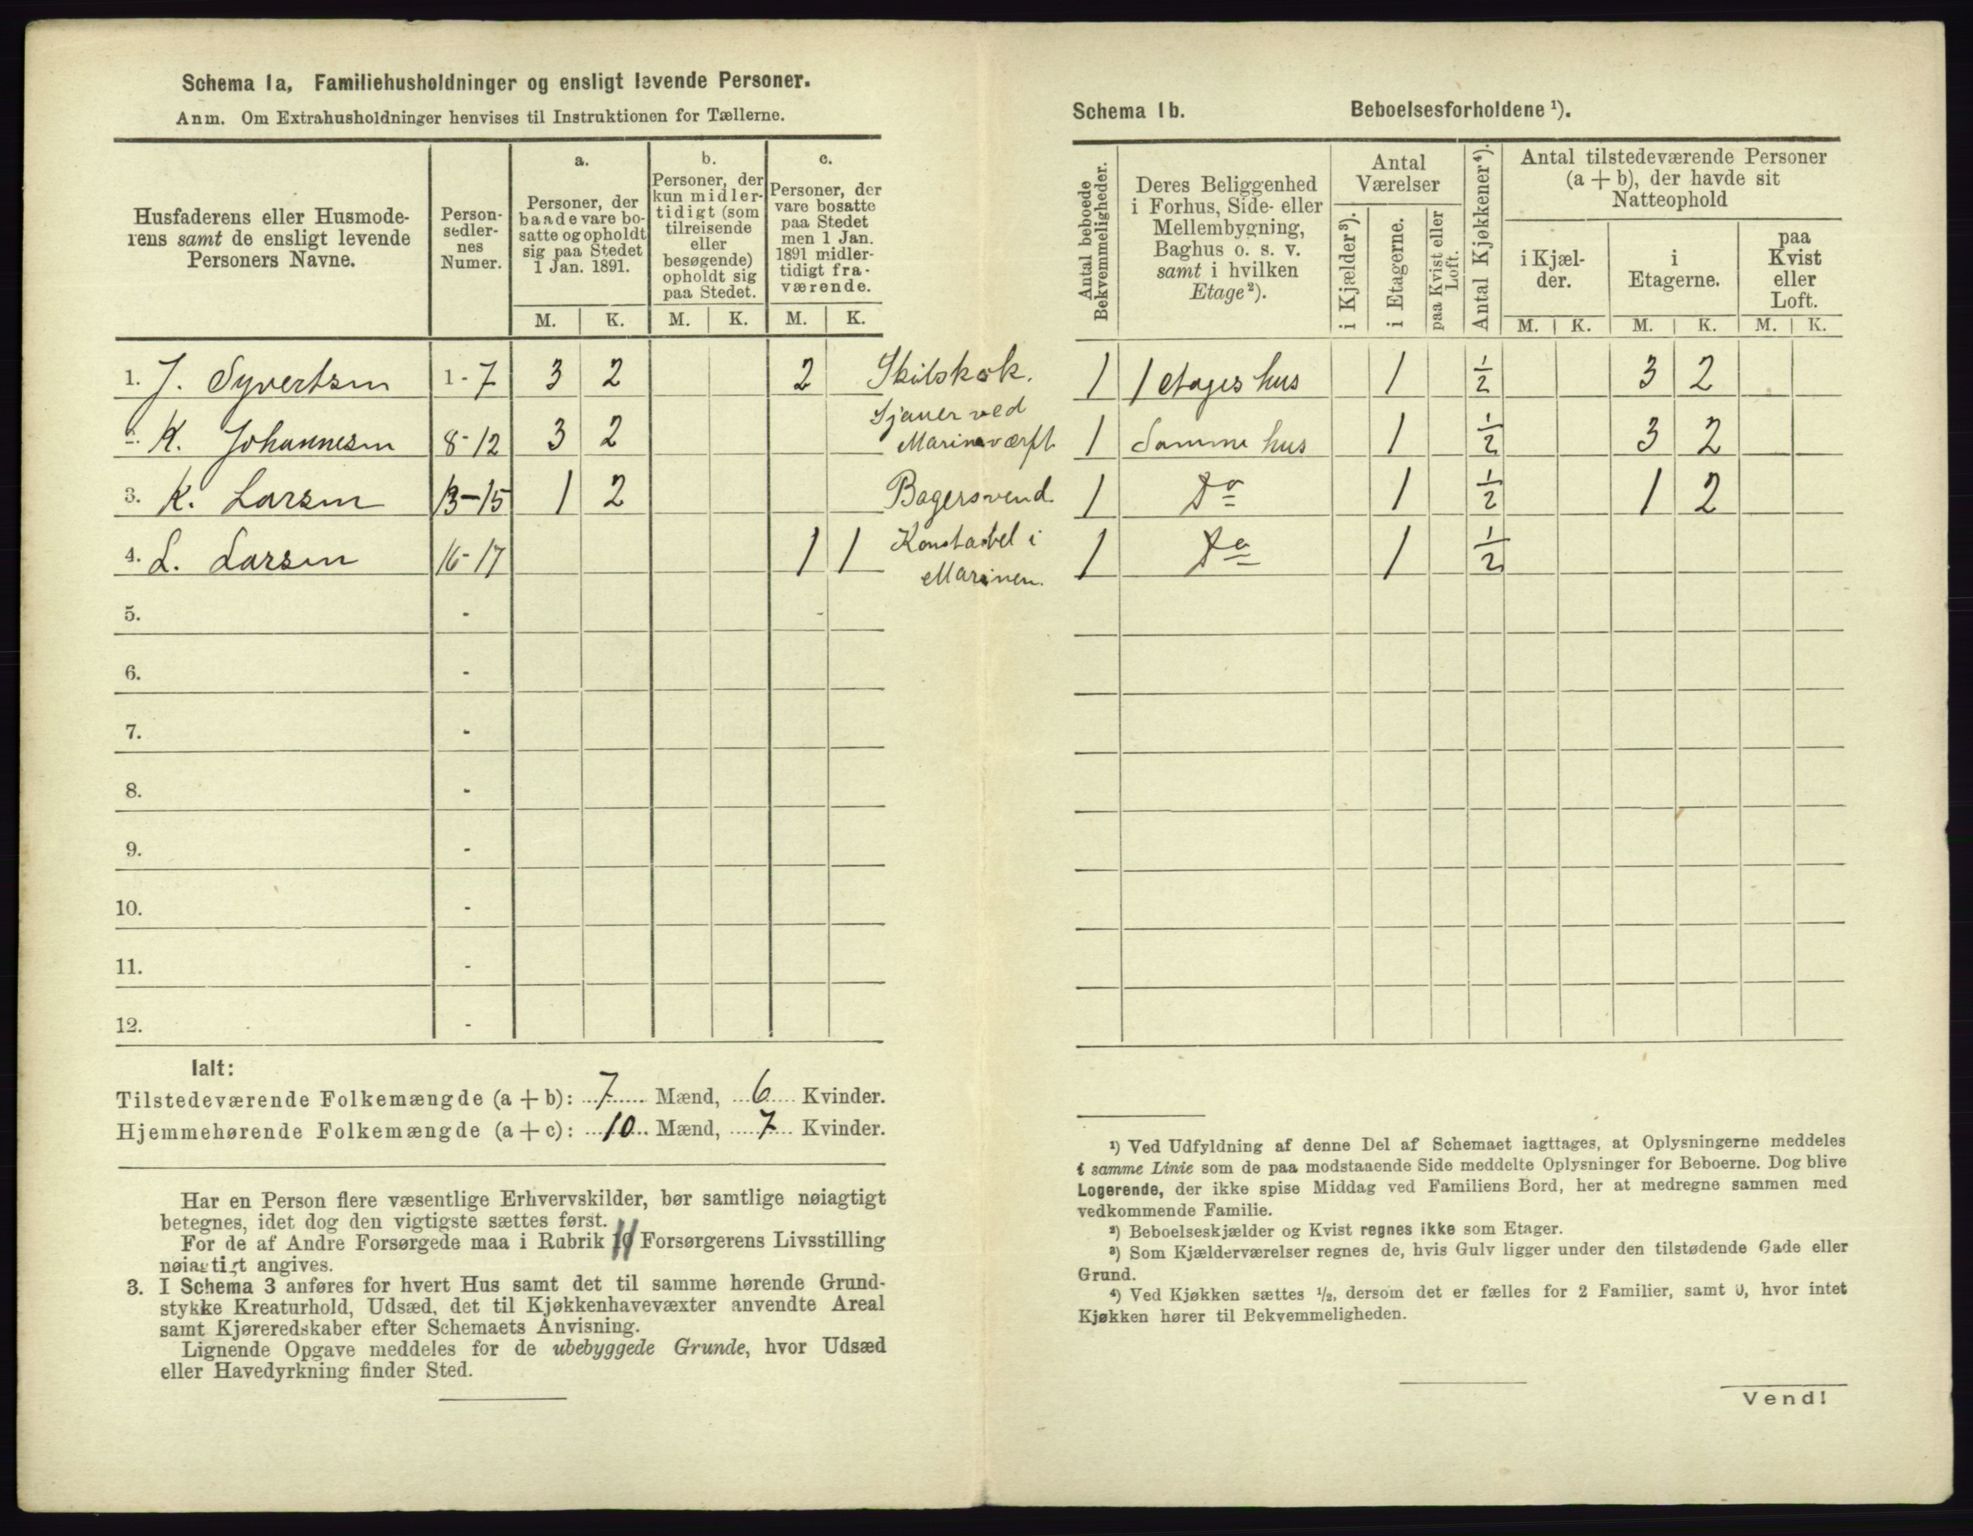 Schema 1a, Familiehusholdninger og ensligt levende Personer.
Anm. Om Extrahusholdninger henvises til Instruktionen for Tællerne.
Husfaderens eller Husmode-
rens samt de ensligt levende
Personers Navne.
Person-
sedler-
nes
Numer.
a.
Personer, der
baade vare bo-
satte og opholdt
sig paa Stedet
1 Jan. 1891.
b.
Personer, der
kun midler-
tidigt (som
tilreisende
eller
besøgende)
opholdt sig
paa Stedet.
c.
Personer, der
vare bosatte
paa Stedet
men 1 Jan.
1891 midler-
tidigt fra-
værende.
M. K. M. K. M. K.
1. J. Syvertsen 1 - 7 3 2 2 Skibskok.
2. K. Johannesen 8 - 12 3 2 Sjauer ved
Marineværft
3. K. Larsen 13 - 15 1 2 Bagersvend
4. L. Larsen 16 - 17 1 1 Konstabel i
Marinen.
5. -
6. -
7. -
8. -
9. -
10. -
11. -
12. -
Ialt:
Tilstedeværende Folkemængde (a + b): 7 Mænd, 6 Kvinder.
Hjemmehørende Folkemængde (a + c): 10 Mænd, 7 Kvinder.
Har en Person flere væsentlige Erhvervskilder, bør samtlige nøiagtigt
betegnes, idet dog den vigtigste sættes først.
For de af Andre Forsørgede maa i Rubrik 11 Forsørgerens Livsstilling
nøiagtigt angives.
3. I Schema 3 anføres for hvert Hus samt det til samme hørende Grund-
stykke Kreaturhold, Udsæd, det til Kjøkkenhavevæxter anvendte Areal
samt Kjøreredskaber efter Schemaets Anvisning.
Lignende Opgave meddeles for de ubebyggede Grunde, hvor Udsæd
eller Havedyrkning finder Sted.
Schema 1b. Beboelsesforholdene ¹).
Antal beboede
Bekvemmeligheder.
Deres Beliggenhed
i Forhus, Side- eller
Mellembygning,
Baghus o. s. v.
samt i hvilken
Etage ²).
Antal
Værelser
i Kjælder ³).
i Etagerne.
paa Kvist eller
Loft.
Antal Kjøkkener ⁴).
Antal tilstedeværende Personer
(a + b), der havde sit
Natteophold
i Kjæl-
der.
i
Etagerne.
paa
Kvist
eller
Loft.
M. K. M. K. M. K.
1 1 etages hus 1 ½ 3 2
1 Samme hus 1 ½ 3 2
1 Do 1 ½ 1 2
1 Do 1 ½
¹) Ved Udfyldning af denne Del af Schemaet iagttages, at Oplysningerne meddeles
i samme Linie som de paa modstaaende Side meddelte Oplysninger for Beboerne. Dog blive
Logerende, der ikke spise Middag ved Familiens Bord, her at medregne sammen med
vedkommende Familie.
²) Beboelseskjælder og Kvist regnes ikke som Etager.
³) Som Kjælderværelser regnes de, hvis Gulv ligger under den tilstødende Gade eller
Grund.
⁴) Ved Kjøkken sættes ½, dersom det er fælles for 2 Familier, samt 0, hvor intet
Kjøkken hører til Bekvemmeligheden.
Vend!